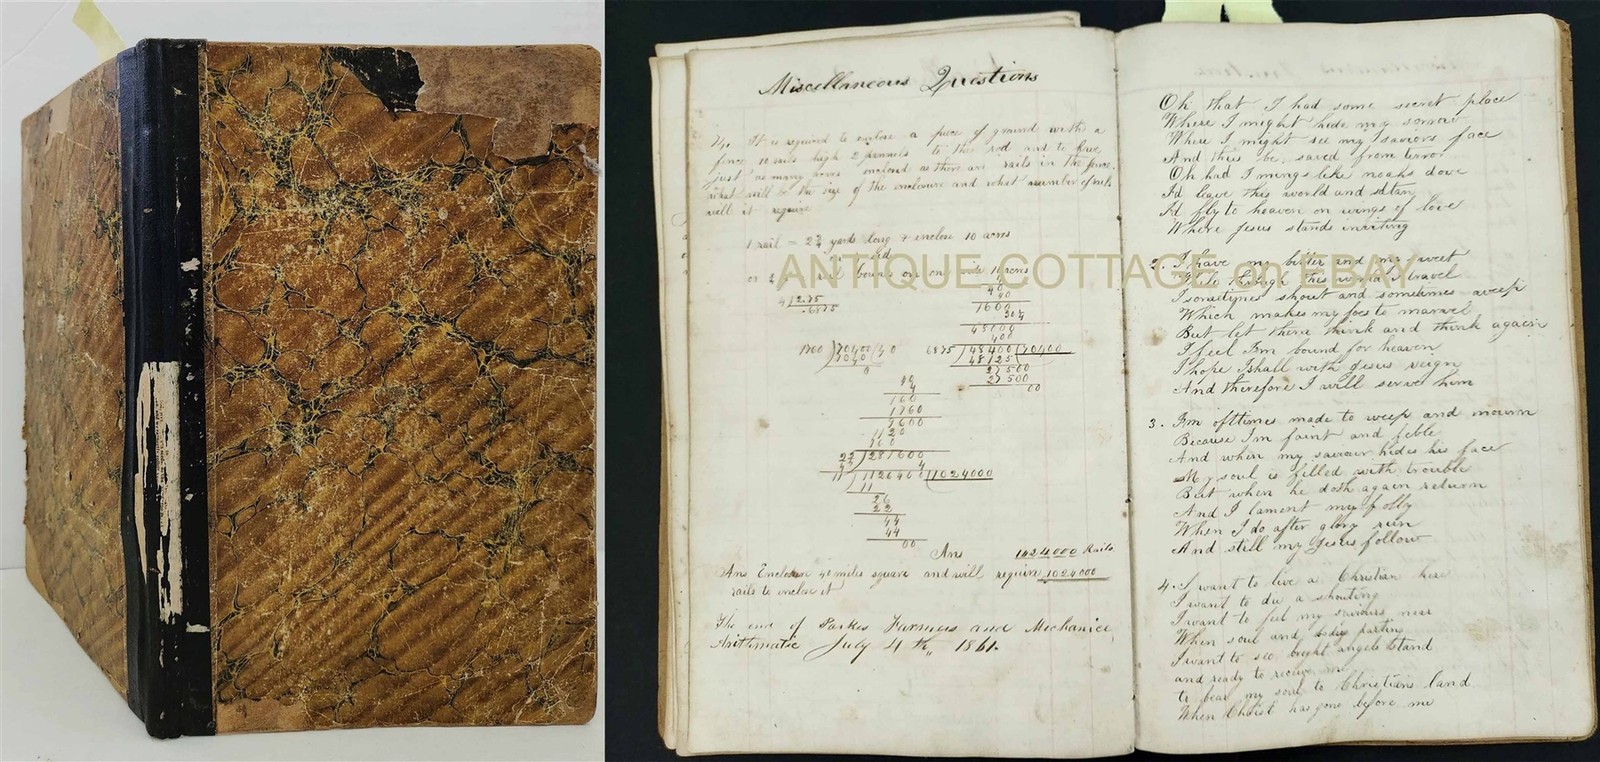 Miscellaneous Questions
24. It is required to enclose a piece of ground with a
fence 10 rails high 2 pannels to the rod and to have
just as many acres enclosed as there are rails in the fence
what will be the size of the enclosure and what number of rails
will it require
1 rail = 2 3/4 yards long + enclose 10 acres
or rail bounds on one side 10 acres
4)2.75
.6875
40
40
1600
30 1/4
48400
1760)70400(40
7040
0
6875)48400(70400
48125
27500
27500
00
40
4
160
1760
9600
1120
160
281600
4
11)1126400(1024000
11
26
22
44
44
00
Ans 1024000 Rails
Ans Enclosure 40 miles square and will require 1024000
rails to enclose it
The end of Parkes Farmers and Mechanics
Arithmatic July 4th, 1861.
Oh that I had some secret place
Where I might hide my sorrow
Where I might see my saviors face
And thus be saved from terror
Oh had I wings like noahs dove
I'd leave this world and satan
I'd fly to heaven on wings of love
Where Jesus stands inviting
2. I have my bitter and my sweet
While through this world I travel
I sometimes shout and sometimes weep
Which makes my foes to marvel
But let them think and think again
I feel Im bound for heaven
I hope I shall with Jesus reign
And therefore I will serve him
3. Im ofttimes made to weep and mourn
Because Im faint and feble
And when my saviour hides his face
My soul is filled with trouble
But when he doth again return
And I lament my folly
When I do after glory run
And still my Jesus follow
4. I want to live a Christian here
I want to die a shouting
I want to feel my saviours near
When soul and body parting
I want to see bright angels stand
and ready to receive me
to bear my soul to Christians land
When Christ has gone before me
ANTIQUE COTTAGE on EBAY